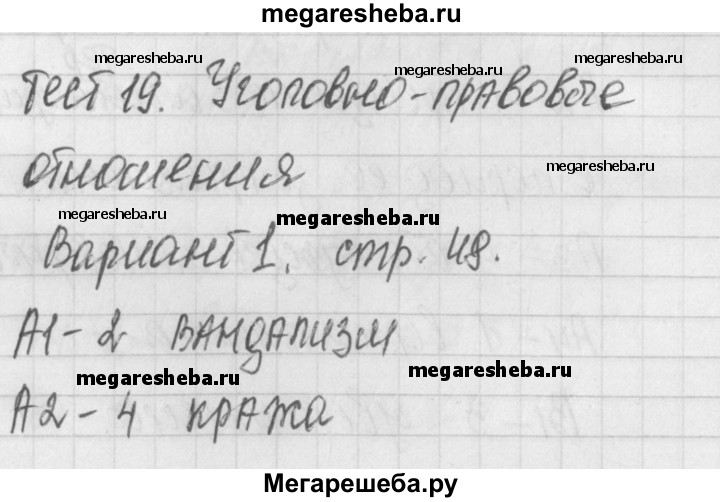 megaresheba.ru
megaresheba.ru
megaresheba.ru
megaresheba.ru
Тест 19. Уголовно-правовые
отношения
megaresheba.ru
megaresheba.ru
megaresheba.ru
Вариант 1. стр. 49.
А1 - 2 вандализм
megaresheba.ru
megaresheba.ru
А2 - 4 кража
Мегарешеба.ру